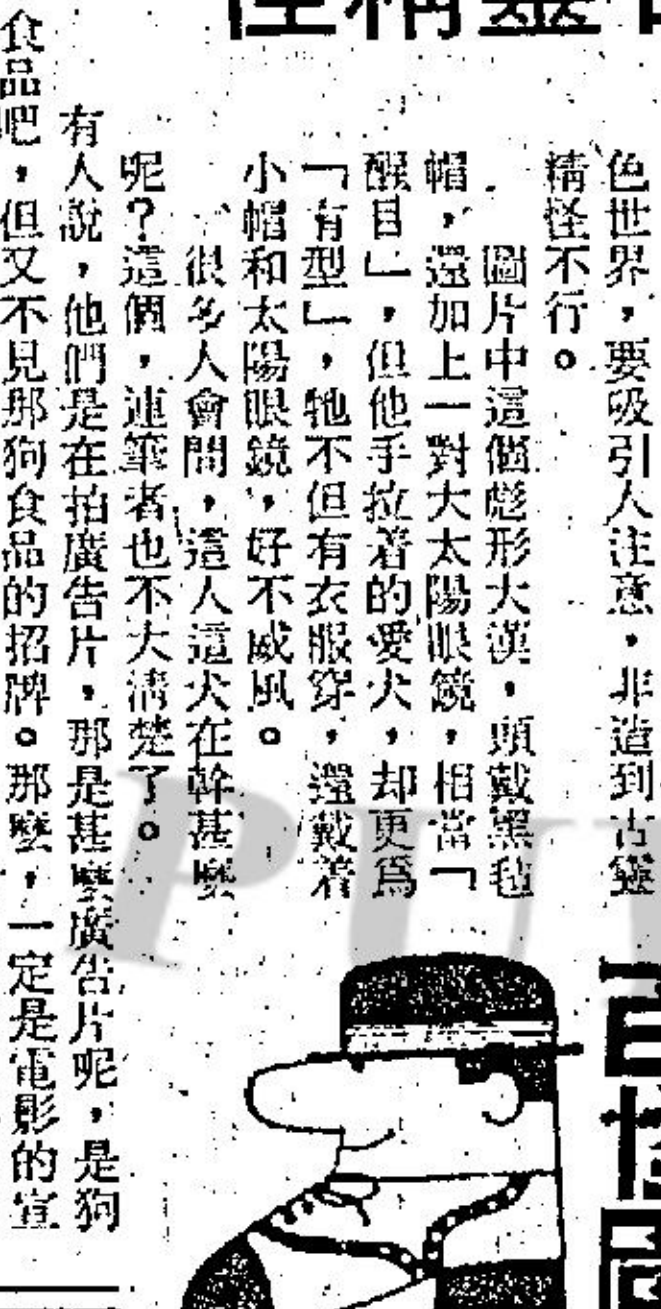 怪精靈古
色世界，要吸引人注意，非造到古靈
精怪不行。
圖片中這個彪形大漢，頭戴黑氈
帽，還加上一對大太陽眼鏡，相當「
醒目」，但他手拉着的愛犬，却更爲
「有型」，牠不但有衣服穿，還戴着
小帽和太陽眼鏡，好不威風。
很多人會問，這人這犬在幹甚麼
呢？這個，連筆者也不大清楚了。
有人說，他們是在拍廣告片，那是甚麼廣告片呢，是狗
食品吧，但又不見那狗食品的招牌。那麼，一定是電影的宣